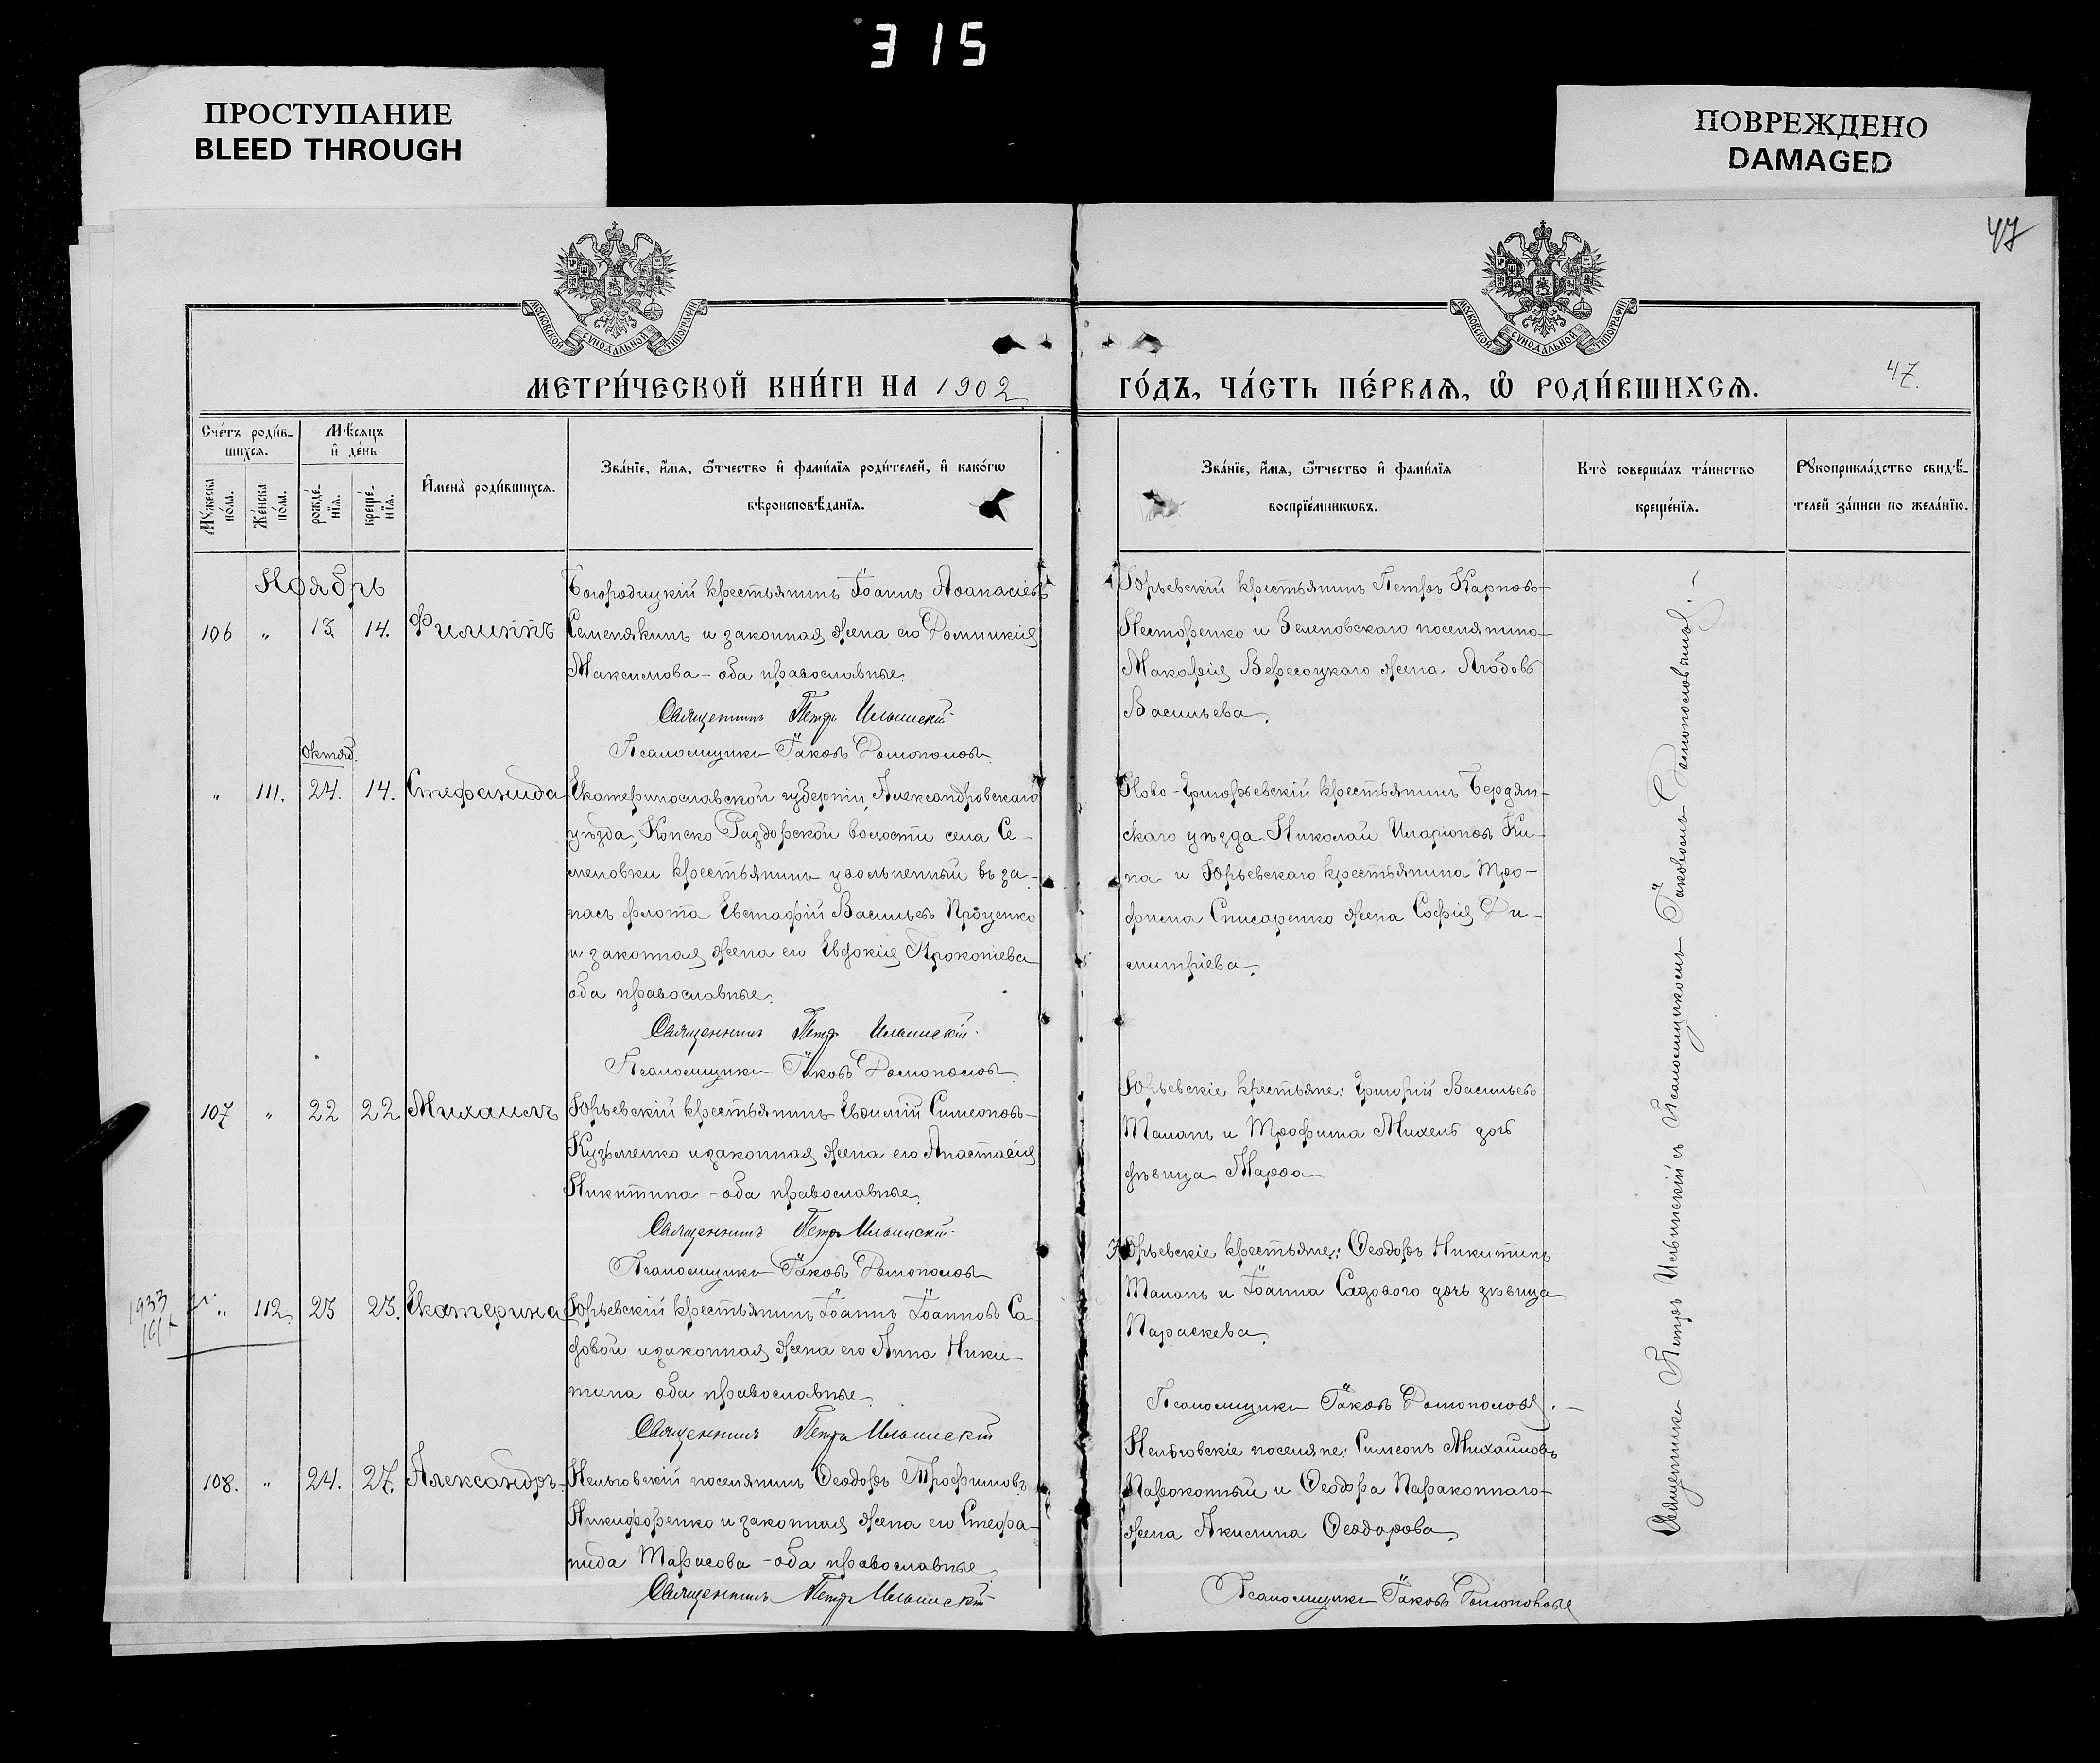 315
ПРОСТУПАНИЕ
BLEED THROUGH
ПОВРЕЖДЕНО
DAMAGED
47
МОСКОВСКОЙ СѴНОДАЛЬНОЙ ТИПОГРАФІИ
МОСКОВСКОЙ СѴНОДАЛЬНОЙ ТИПОГРАФІИ
МЕТРИ́ЧЕСКОЙ КНИ́ГИ НА 1902
ГО́ДЪ, ЧА́СТЬ ПЕ́РВАѦ, Ѽ РОДИ́ВШИХСѦ.
47.
Сче́тъ роди́в-
шихсѧ.
Мѣ́сѧцъ
и҆ де́нь
Мꙋ́жеска по́ла.
Же́нска по́ла.
рожде́-нїѧ.
креще́-нїѧ.
И҆мена̀ роди́вшихсѧ.
Зва́нїе, и҆́мѧ, ѻ҆́тчество и҆ фами́лїѧ роди́телей, и҆ како́гѡ
вѣроисповѣ́данїѧ.
Зва́нїе, и҆́мѧ, ѻ҆́тчество и҆ фами́лїѧ
воспрїе́мникѡвъ.
Кто̀ соверша́лъ та́инство
креще́нїѧ.
Рꙋкоприкла́дство свидѣ́-
телей за́писи по жела́нїю.
Ноябрь
106 " 13. 14. Филиппъ
Богородицкій крестьянинъ Іоаннъ Аѳанасіевъ
Семенякинъ и законная жена его Домникія
Максимова - оба православные.
Священникъ Петръ Ильинскій
Псаломщикъ Іаковъ Домонословъ
Юрьевскій крестьянинъ Петръ Карповъ
Несторенко и Зеленовскаго поселянина
Макарія Вересоцкаго жена Любовь
Васильева.
Октяб.
" 111. 24. 14. Стефанида
Екатеринославской губерніи, Александровскаго
уѣзда, Конско Раздорской волости села Се-
меновки крестьянинъ уволенный въ за-
пасъ флота Евстафій Васильевъ Проценко
и законная жена его Евдокія Прокопіева
оба православные.
Священникъ Петръ Ильинскій
Псаломщикъ Іаковъ Домонословъ
Ново-Григорьевскій крестьянинъ Бердян-
скаго уѣзда Николай Иларіоновъ Ки-
па и Юрьевскаго крестьянина Тро-
фима Слисаренко жена Софія Ди-
митріева.
107 " 22 22 Михаилъ
Юрьевскій крестьянинъ Евѳимій Симеоновъ
Кузьменко и законная жена его Анастасія
Никитина - оба православные.
Священникъ Петръ Ильинскій
Псаломщикъ Іаковъ Домонословъ
Юрьевскіе крестьяне: Григорій Васильевъ
Таланъ и Трофима Михель дочь
дѣвица Марѳа
1933
" 112. 23 23. Екатерина
Юрьевскій крестьянинъ Іоаннъ Іоанновъ Са-
довой и законная жена его Анна Ники-
тина оба православные.
Священникъ Петръ Ильинскій
Юрьевскіе крестьяне: Ѳеодоръ Никитинъ
Таланъ и Іоанна Садового дочь дѣвица
Параскева.
Псаломщикъ Іаковъ Домонословъ.
108. " 24. 27. Александръ
Нельговскій поселянинъ Ѳеодоръ Трофимовъ
Никифоренко и законная жена его Стефа-
нида Тарасова - оба православные.
Священникъ Петръ Ильинскій
Нельговскіе поселяне: Симеонъ Михайловъ
Параконный и Ѳеодора Параконнаго
жена Акилина Ѳеодорова.
Псаломщикъ Іаковъ Домонословъ
Священникъ Петръ Ильинскій съ Псаломщикомъ Іаковомъ Домонословымъ.